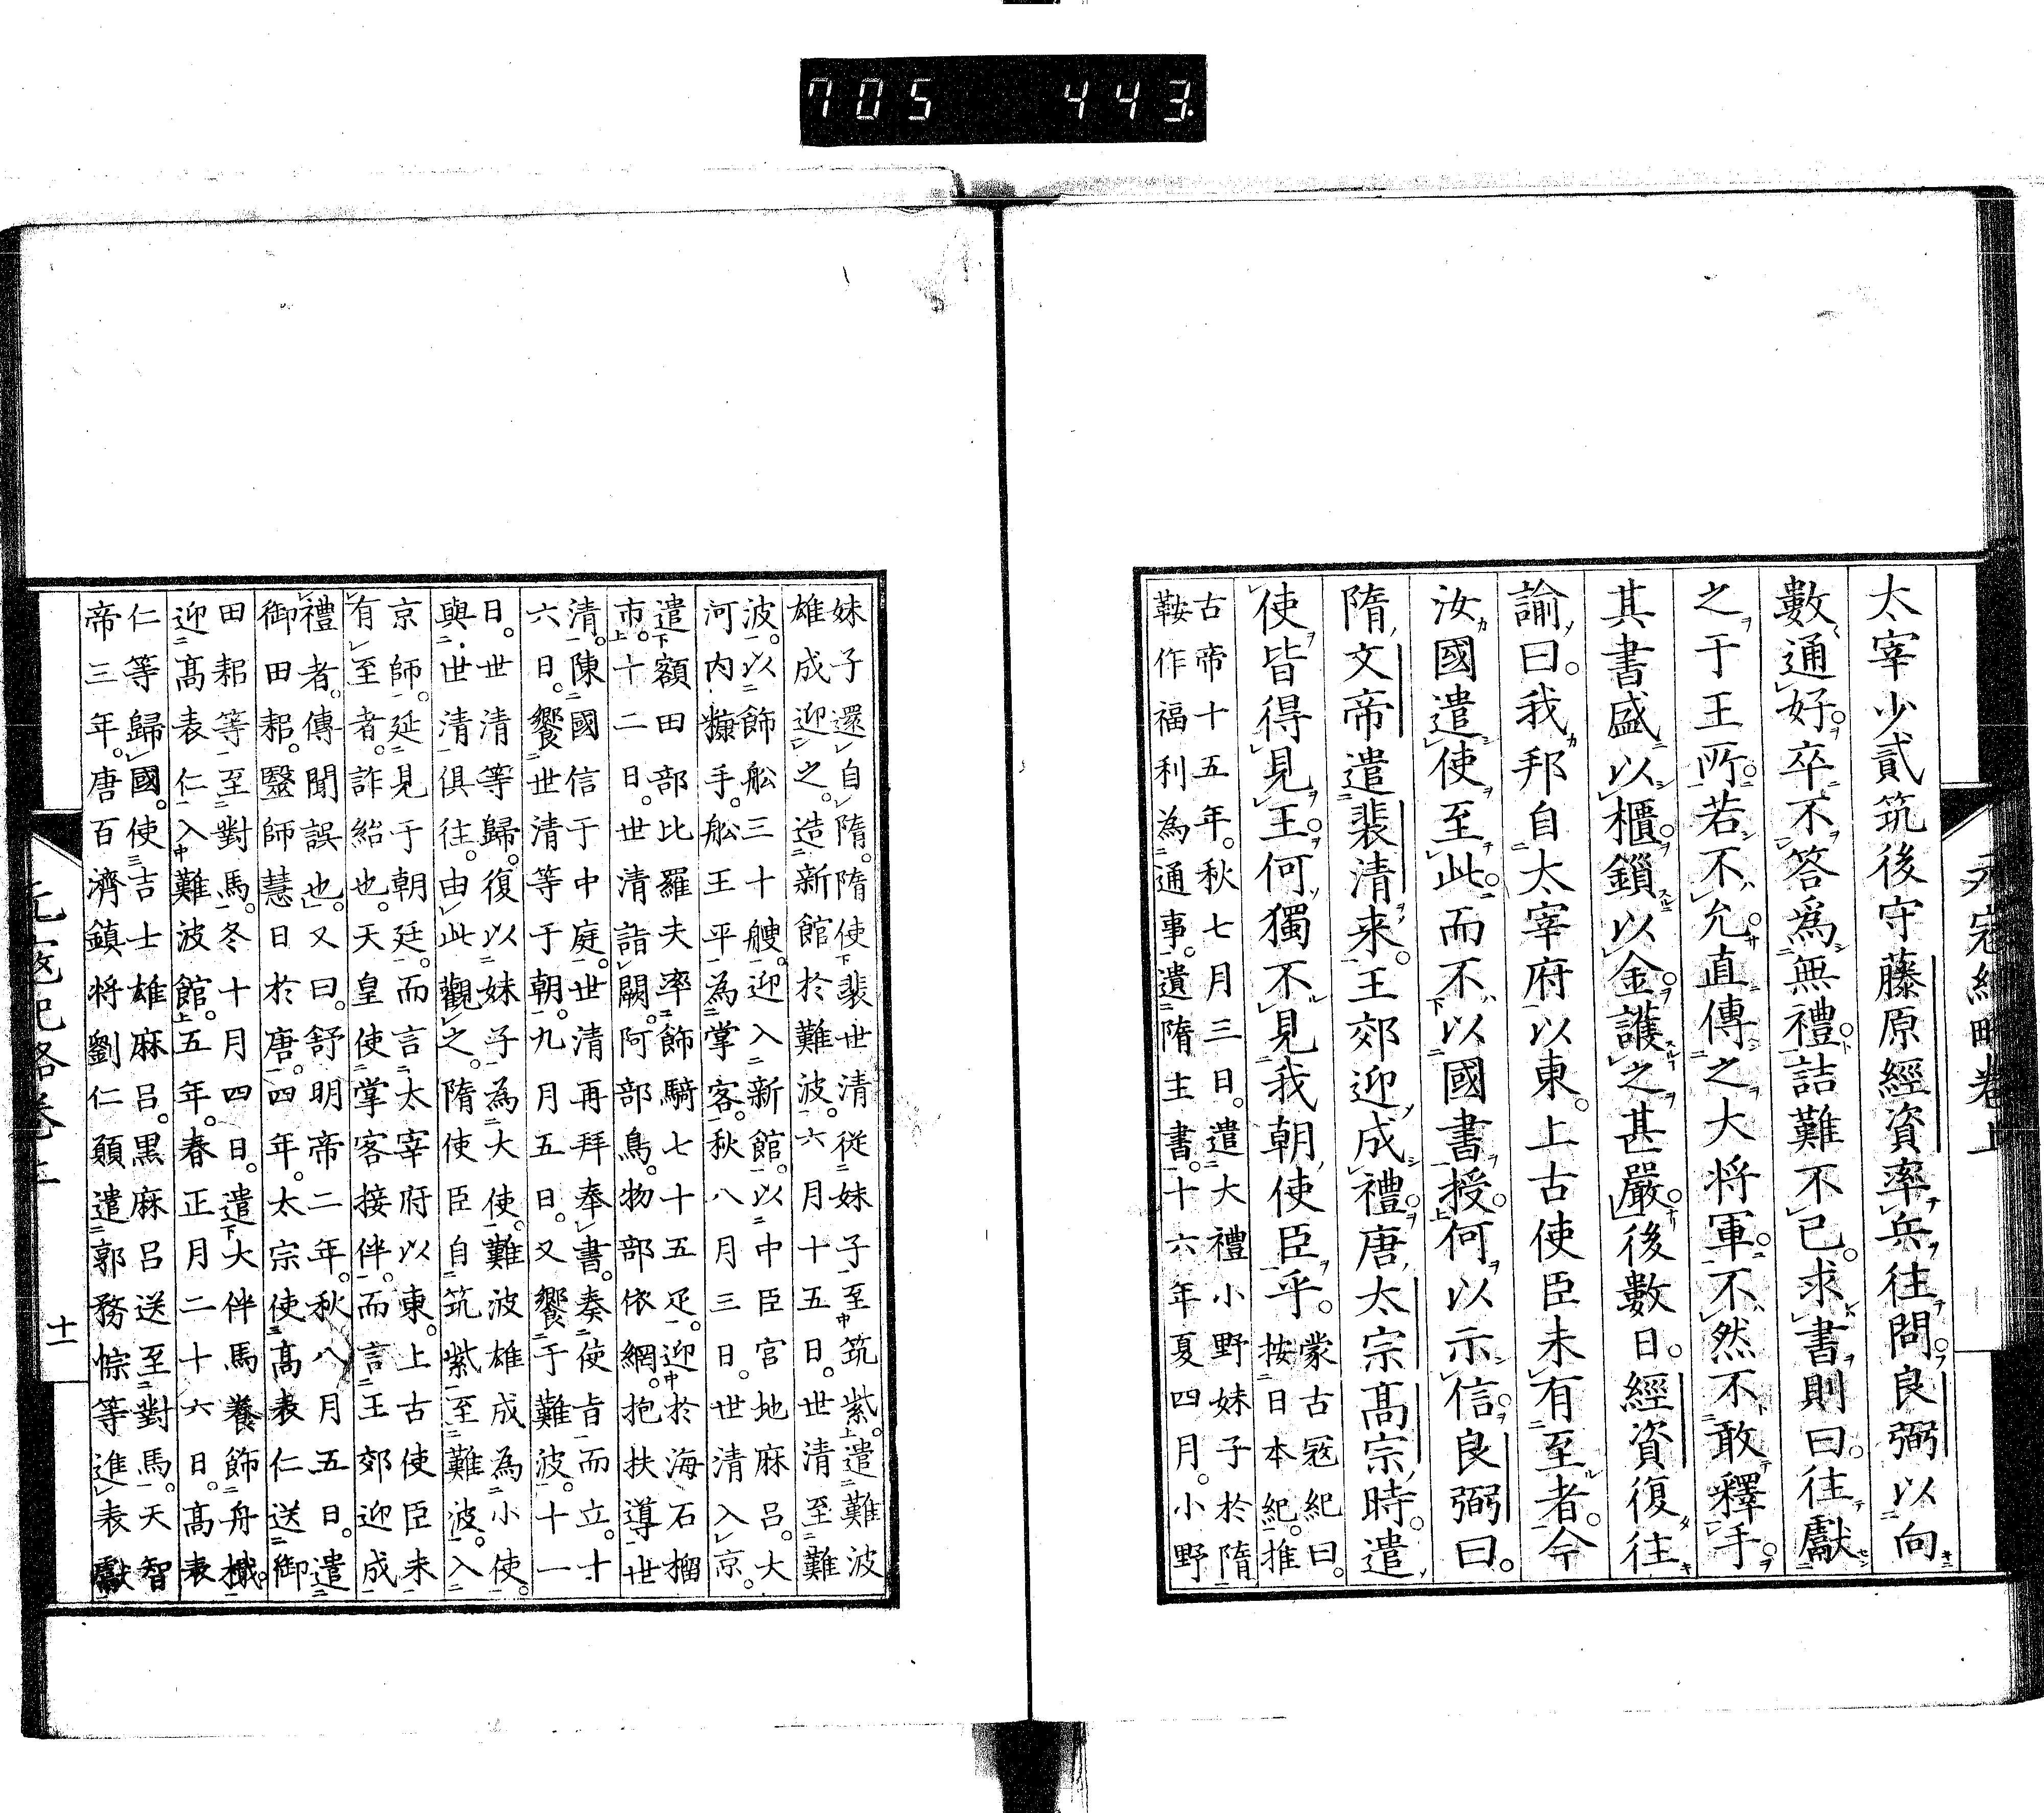 705 443
太宰少貳筑後守藤原經資率兵往問良弼以向
數通好卒不答爲無禮詰難不已求書則曰往獻
之于王所若不允直傳之大将軍不然不敢釋手
其書盛以櫃鎖以金護之甚嚴後數日經資復往
諭曰我邦自太宰府以東上古使臣未有至者今
汝國遣使至此而不以國書授何以示信良弼曰
隋文帝遣裴清来王郊迎成禮唐太宗髙宗時遣
使皆得見王何獨不見我朝使臣乎
蒙古寇紀曰
按日本紀推
古帝十五年秋七月三日遣大禮小野妹子於隋
鞍作福利為通事遺隋主書十六年夏四月小野
妹子還自隋隋使裴世清従妹子至筑紫遣難波
雄成迎之造新館於難波六月十五日世清至難
波以飾舩三十艘迎入新館以中臣官地麻呂大
河内糠手舩王平為掌客秋八月三日世清入京
遣額田部比羅夫率飾騎七十五疋迎於海石榴
市十二日世清詣闕阿部鳥物部依網抱扶導世
清陳國信于中庭世清再拜奉書奏使旨而立十
六日饗世清等于朝九月五日又饗于難波十一
日世清等歸復以妹子為大使難波雄成為小使
與世清俱往由此觀之隋使臣自筑紫至難波入
京師延見于朝廷而言太宰府以東上古使臣未
有至者詐紿也天皇使掌客接伴而言王郊迎成
禮者傳聞誤也又曰舒明帝二年秋八月五日遣
御田耜毉師慧日於唐四年太宗使髙表仁送御
田耜等至對馬冬十月四日遣大伴馬養飾舟檝
迎髙表仁入難波館五年春正月二十六日髙表
仁等歸國使吉士雄麻呂黒麻呂送至對馬天智
帝三年唐百濟鎮将劉仁願遣郭務悰等進表獻
元寇紀略卷上
十一